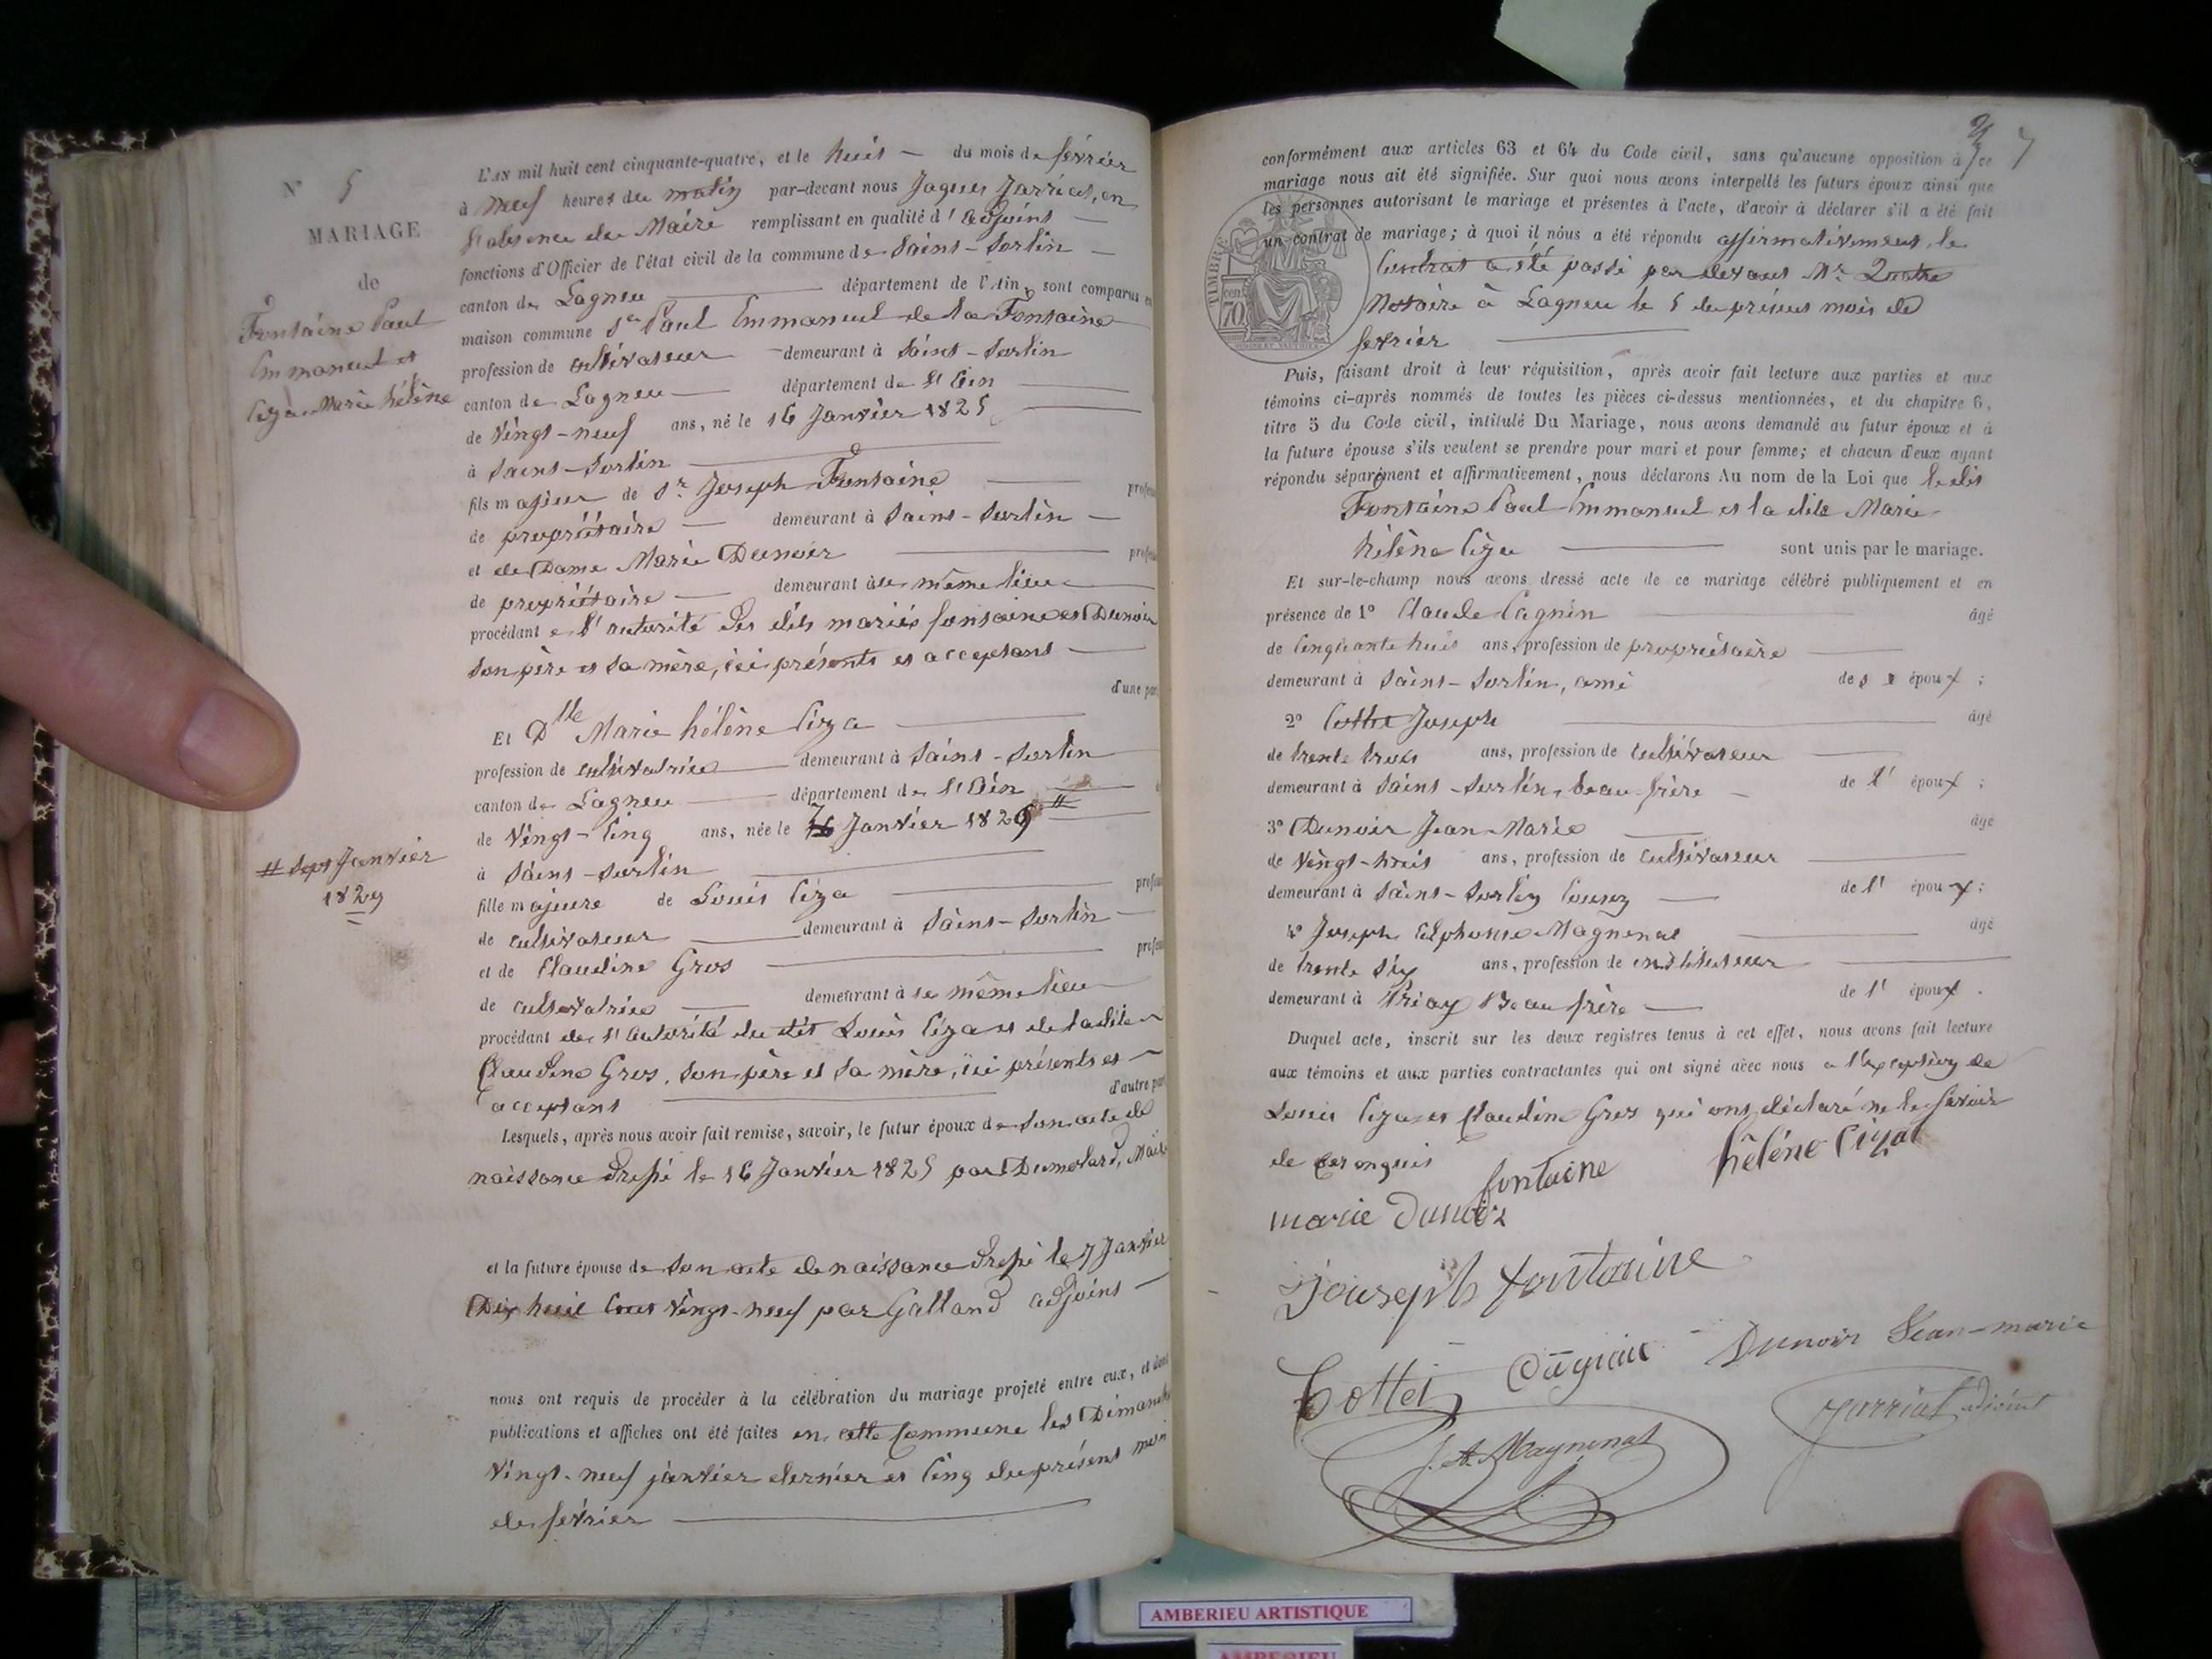 N° 5
MARIAGE
de
Fontaine Paul
Emmanuel et
Ciza Marie hélène
# Sept Janvier
1829
L'AN mil huit cent cinquante-quatre, et le huit — du mois de février
à neuf heures du matin par-devant nous Jaques Jarriat, en
l'absence du Maire remplissant en qualité d'adjoint —
fonctions d'Officier de l'état civil de la commune de Saint-Sorlin —
canton de Lagneu — département de l'Ain, sont comparus en
maison commune Sr Paul Emmanuel de la Fontaine
profession de cultivateur — demeurant à Saint-Sorlin
canton de Lagneu — département de l'Ain —
de vingt-neuf ans, né le 16 Janvier 1825 —
à Saint-Sorlin —
fils majeur de Sr Joseph Fontaine — profes
de propriétaire — demeurant à Saint-Sorlin —
et de Dame Marie Dunoir — profes
de propriétaire — demeurant à le même lieu —
procédant de l'autorité des dits mariés fontaine et Dunoir
son père et sa mère, ici présents et acceptant —
d'une par
Et Dlle Marie hélène Ciza —
profession de cultivatrice — demeurant à Saint-Sorlin
canton de Lagneu — département de l'Ain —
de vingt-cinq ans, née le Janvier 1829 # —
à Saint-Sorlin —
fille majeure de Louis Ciza — profes
de cultivateur — demeurant à Saint-Sorlin —
et de Claudine Gros — profes
de cultivatrice — demeurant à le même lieu —
procédant de l'autorité du dit Louis Ciza et de ladite
Claudine Gros, son père et sa mère, ici présents et —
acceptant — d'autre par
Lesquels, après nous avoir fait remise, savoir, le futur époux de son acte de
naissance dressé le 16 Janvier 1825 par Dumolard, Maire
et la future épouse de son acte de naissance dressé le 7 Janvier
Dix huit Cent vingt-neuf par Galland adjoint —
nous ont requis de procéder à la célébration du mariage projeté entre eux, et dont
publications et affiches ont été faites en cette Commune les Dimanche
vingt-neuf janvier dernier et cinq du présent mois
de février —
7
conformément aux articles 63 et 64 du Code civil, sans qu'aucune opposition à ce
mariage nous ait été signifiée. Sur quoi nous avons interpellé les futurs époux ainsi que
les personnes autorisant le mariage et présentes à l'acte, d'avoir à déclarer s'il a été fait
un contrat de mariage; à quoi il nous a été répondu affirmativement, le
TIMBRE
cent
70
Contrat a été passé par devant Mr
Notaire à Lagneu le 5 du présent mois de
février —
Puis, faisant droit à leur réquisition, après avoir fait lecture aux parties et aux
témoins ci-après nommés de toutes les pièces ci-dessus mentionnées, et du chapitre 6,
titre 5 du Code civil, intitulé Du Mariage, nous avons demandé au futur époux et à
la future épouse s'ils veulent se prendre pour mari et pour femme; et chacun d'eux ayant
répondu séparément et affirmativement, nous déclarons Au nom de la Loi que le dit
Fontaine Paul Emmanuel et la dite Marie
hélène Ciza — sont unis par le mariage.
Et sur-le-champ nous avons dressé acte de ce mariage célébré publiquement et en
présence de 1° Claude Cagnin — âgé
de Cinquante huit ans, profession de propriétaire —
demeurant à Saint-Sorlin, ami des époux ;
2° Cottet Joseph — âgé
de trente trois ans, profession de Cultivateur —
demeurant à Saint-Sorlin, beau-frère — de l' époux ;
3° Dunoir Jean-Marie — âgé
de vingt-huit ans, profession de Cultivateur —
demeurant à Saint-Sorlin Cousin — de l' époux ;
4° Joseph Alphonse Magnenat — âgé
de trente six ans, profession de instituteur —
demeurant à Priay Beau frère — de l' époux .
Duquel acte, inscrit sur les deux registres tenus à cet effet, nous avons fait lecture
aux témoins et aux parties contractantes qui ont signé avec nous a l'exception de
Louis Ciza et Claudine Gros qui ont déclaré ne le savoir
de ce requis
fontaine hélène Cizat
marie Dunoir
Jouseph fontaine
Cottet Cagnin Dunoir Jean-marie
J. A. Magnenat Jarriat adjoint
AMBERIEU ARTISTIQUE
AMBERIEU